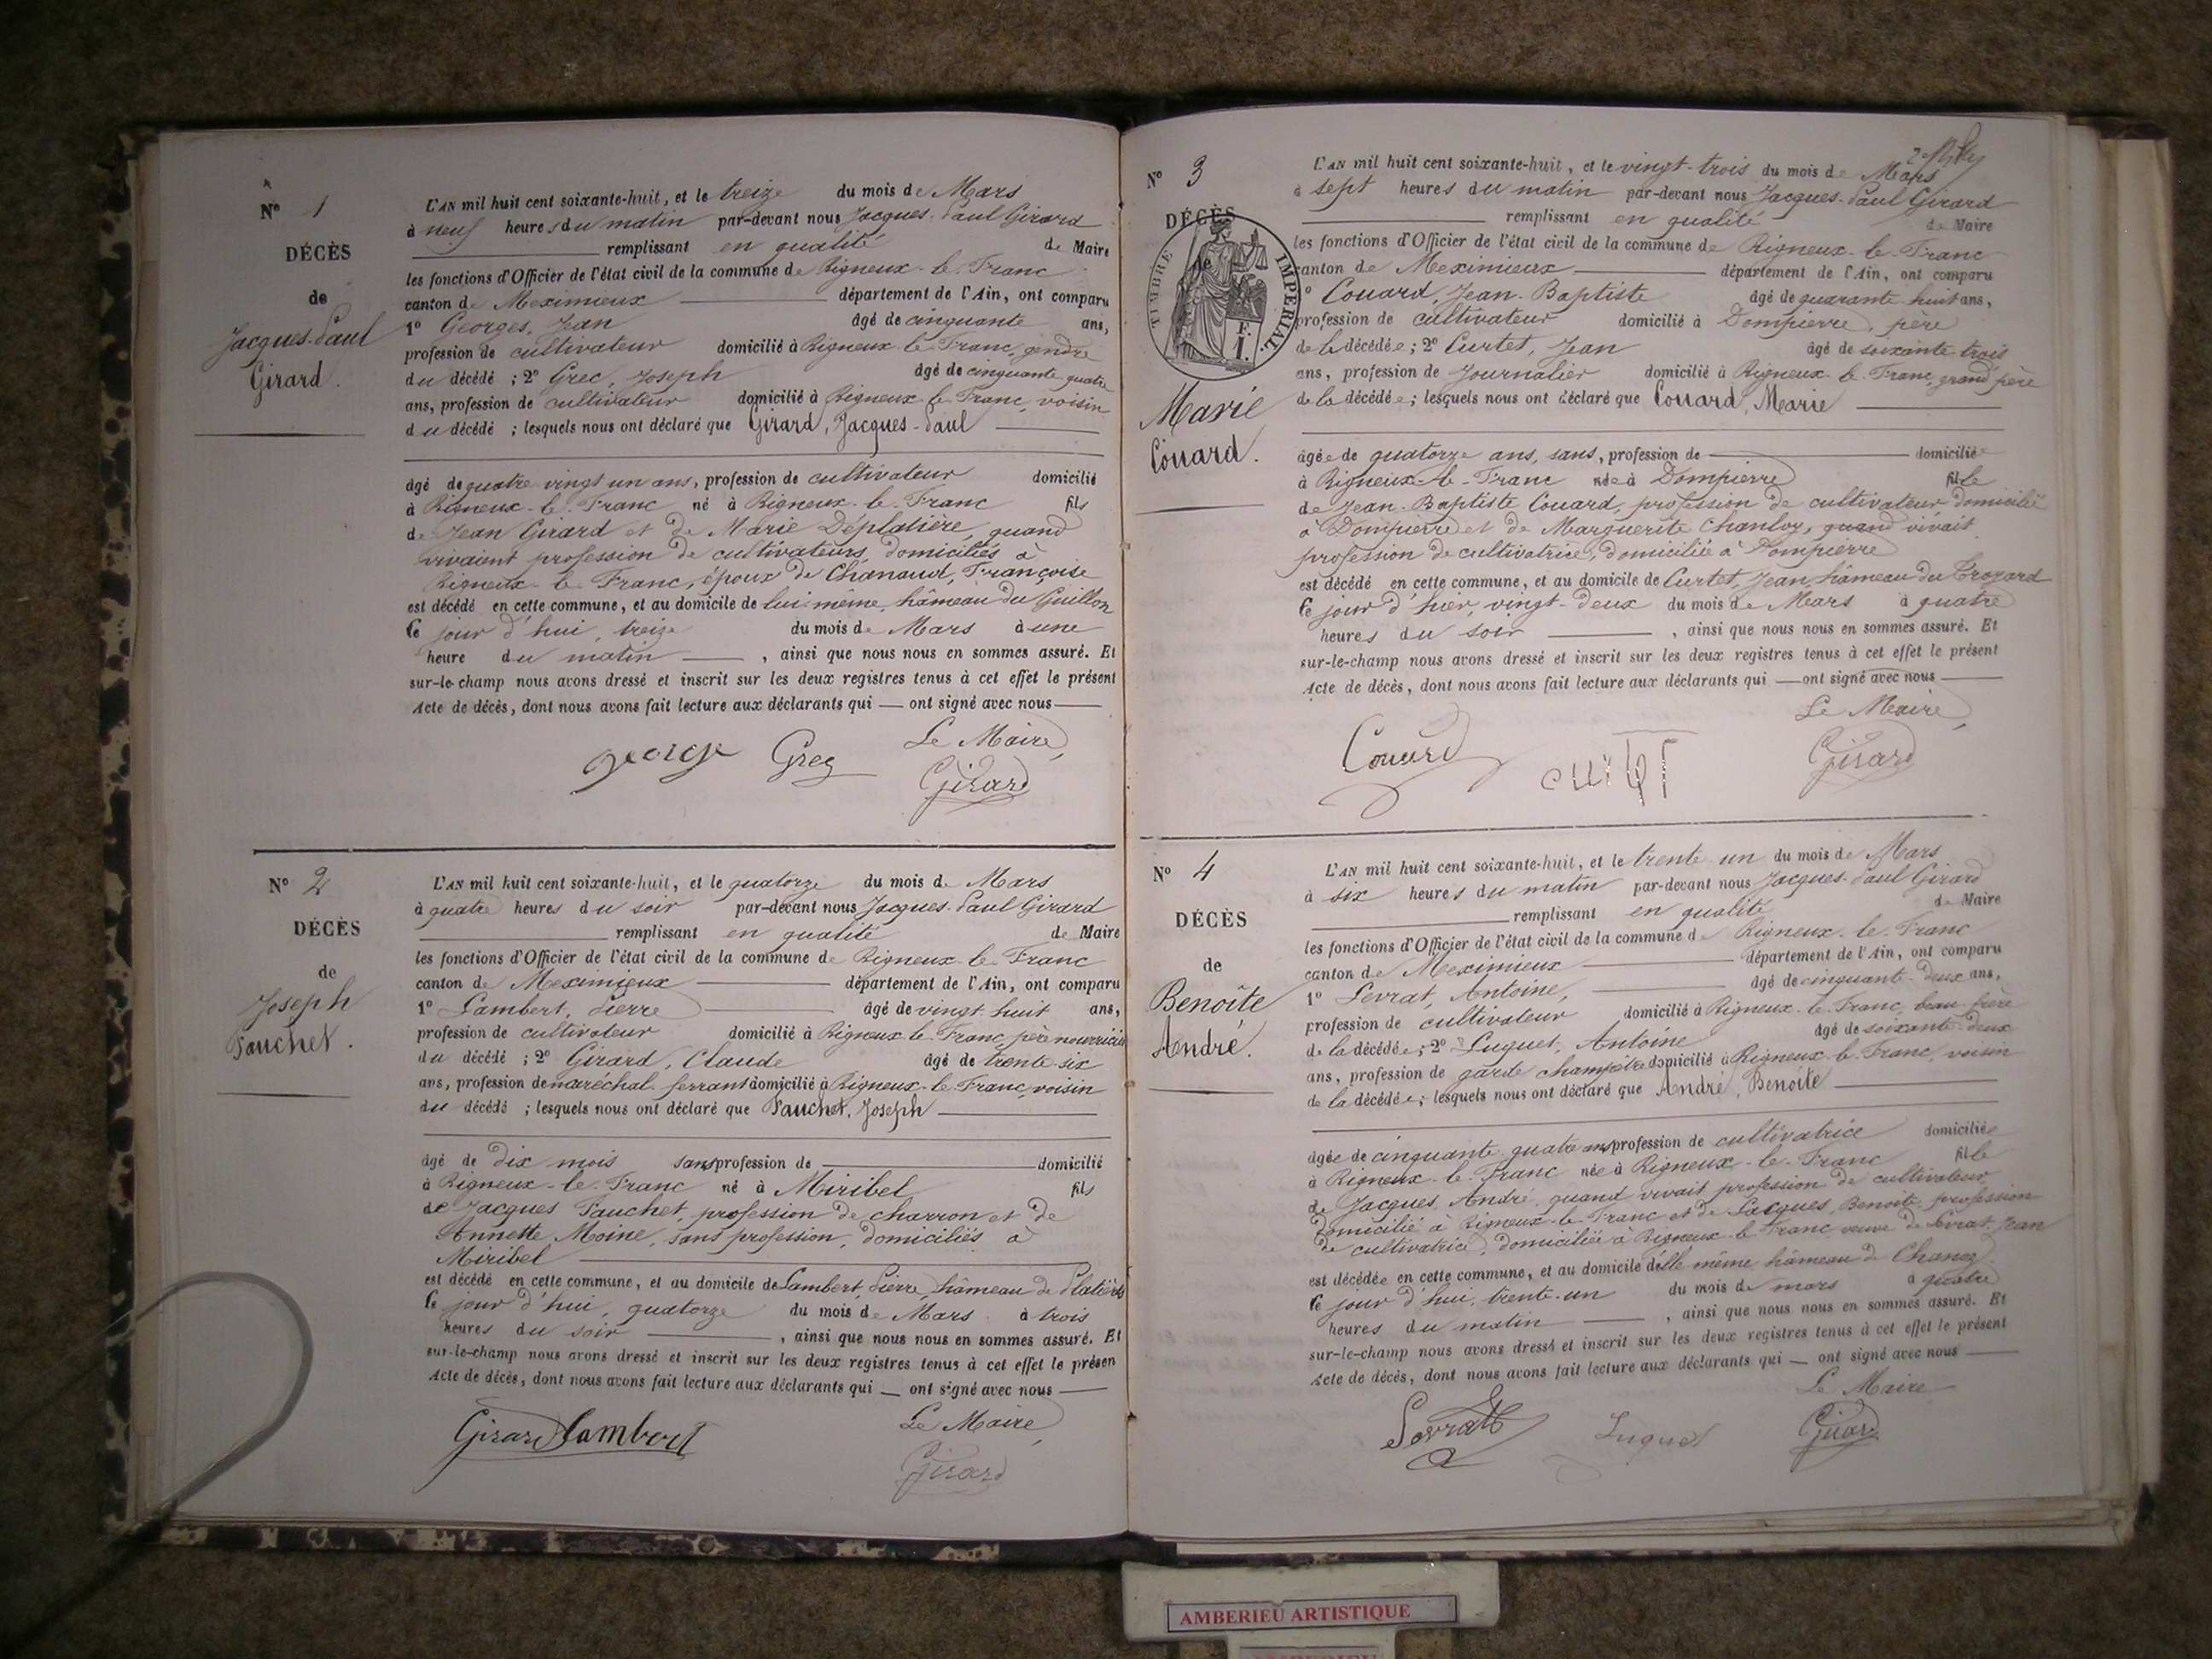 Nº 1
DÉCÈS
de
Jacques-Paul
Girard.
L'AN mil huit cent soixante-huit, et le treize du mois de Mars
à neuf heures du matin par-devant nous Jacques-Paul Girard
remplissant en qualité de Maire
les fonctions d'Officier de l'état civil de la commune de Rigneux-le-Franc
canton de Meximieux département de l'Ain, ont comparu
1º Georges, Jean âgé de cinquante ans,
profession de cultivateur domicilié à Rigneux-le-Franc, gendre
du décédé ; 2º Grec, Joseph âgé de cinquante-quatre
ans, profession de cultivateur domicilié à Rigneux-le-Franc, voisin
du décédé ; lesquels nous ont déclaré que Girard, Jacques-Paul
âgé de quatre vingt un ans, profession de cultivateur domicilié
à Rigneux-le-Franc né à Rigneux-le-Franc fils
de Jean Girard et de Marie Déplatière, quand
vivaient profession de cultivateurs, domiciliés à
Rigneux-le-Franc, époux de Chanaud, Françoise
est décédé en cette commune, et au domicile de lui-même, hâmeau du Guillon
le jour d'hui, treize du mois de Mars à une
heure du matin , ainsi que nous nous en sommes assuré. Et
sur-le-champ nous avons dressé et inscrit sur les deux registres tenus à cet effet le présent
Acte de décès, dont nous avons fait lecture aux déclarants qui — ont signé avec nous
Le Maire,
george Greg Girard
Nº 2
DÉCÈS
de
Joseph
Pauchet.
L'AN mil huit cent soixante-huit, et le quatorze du mois de Mars
à quatre heures du soir par-devant nous Jacques-Paul Girard
remplissant en qualité de Maire
les fonctions d'Officier de l'état civil de la commune de Rigneux-le-Franc
canton de Meximieux département de l'Ain, ont comparu
1º Lambert, Pierre âgé de vingt huit ans,
profession de cultivateur domicilié à Rigneux-le-Franc, père nourricier
du décédé ; 2º Girard, Claude âgé de trente-six
ans, profession de maréchal-ferrant domicilié à Rigneux-le-Franc, voisin
du décédé ; lesquels nous ont déclaré que Pauchet, Joseph
âgé de dix mois sans profession de domicilié
à Rigneux-le-Franc né à Miribel fils
de Jacques Pauchet, profession de charron et de
Annette Moine, sans profession, domiciliés à
Miribel
est décédé en cette commune, et au domicile de Lambert, Pierre, hâmeau de Platières
le jour d'hui, quatorze du mois de Mars à trois
heures du soir , ainsi que nous nous en sommes assuré. Et
sur-le-champ nous avons dressé et inscrit sur les deux registres tenus à cet effet le présen
Acte de décès, dont nous avons fait lecture aux déclarants qui — ont signé avec nous
Le Maire,
Girard Lambert Girard
Nº 3
DÉCÈS
de
TIMBRE IMPERIAL
F.
1.
Marie
Couard.
L'AN mil huit cent soixante-huit, et le vingt-trois du mois de Mars
à sept heures du matin par-devant nous Jacques-Paul Girard
remplissant en qualité de Maire
les fonctions d'Officier de l'état civil de la commune de Rigneux-le-Franc
canton de Meximieux département de l'Ain, ont comparu
º Couard, Jean-Baptiste âgé de quarante-huit ans,
profession de cultivateur domicilié à Dompierre, père
de la décédée ; 2º Curtet, Jean âgé de soixante-trois
ans, profession de Journalier domicilié à Rigneux-le-Franc, grand père
de la décédée ; lesquels nous ont déclaré que Couard, Marie
âgée de quatorze ans, sans, profession de domiciliée
à Rigneux-le-Franc née à Dompierre fille
de Jean-Baptiste Couard, profession de cultivateur, domicilié
à Dompierre et de Marguerite, quand vivait
profession de cultivatrice, domiciliée à Dompierre
est décédé en cette commune, et au domicile de Curtet, Jean, hâmeau du
le jour d'hier, vingt-deux du mois de Mars à quatre
heures du soir , ainsi que nous nous en sommes assuré. Et
sur-le-champ nous avons dressé et inscrit sur les deux registres tenus à cet effet le présent
Acte de décès, dont nous avons fait lecture aux déclarants qui — ont signé avec nous
Le Maire,
Couard Girard
Nº 4
DÉCÈS
de
Benoîte
André.
L'AN mil huit cent soixante-huit, et le trente-un du mois de Mars
à six heures du matin par-devant nous Jacques-Paul Girard
remplissant en qualité de Maire
les fonctions d'Officier de l'état civil de la commune de Rigneux-le-Franc
canton de Meximieux département de l'Ain, ont comparu
1º Levrat, Antoine, âgé de cinquante-deux ans,
profession de cultivateur domicilié à Rigneux-le-Franc, beau-frère
de la décédée ; 2º Luquet, Antoine âgé de soixante-deux
ans, profession de garde champêtre domicilié à Rigneux-le-Franc, voisin
de la décédée ; lesquels nous ont déclaré que André, Benoîte
âgée de cinquante-quatre ans profession de cultivatrice domiciliée
à Rigneux-le-Franc née à Rigneux-le-Franc fille
de Jacques André, quand vivait profession de cultivateur,
domicilié à Rigneux-le-Franc et de Jacques, Benoîte, profession
de cultivatrice, domiciliée à Rigneux-le-Franc veuve de Levrat, Jean
est décédée en cette commune, et au domicile d'elle même, hâmeau de Chanoz
le jour d'hui, trente-un du mois de mars à quatre
heures du matin , ainsi que nous nous en sommes assuré. Et
sur-le-champ nous avons dressé et inscrit sur les deux registres tenus à cet effet le présent
Acte de décès, dont nous avons fait lecture aux déclarants qui — ont signé avec nous
Le Maire
Levrat Luquet Girard
AMBERIEU ARTISTIQUE